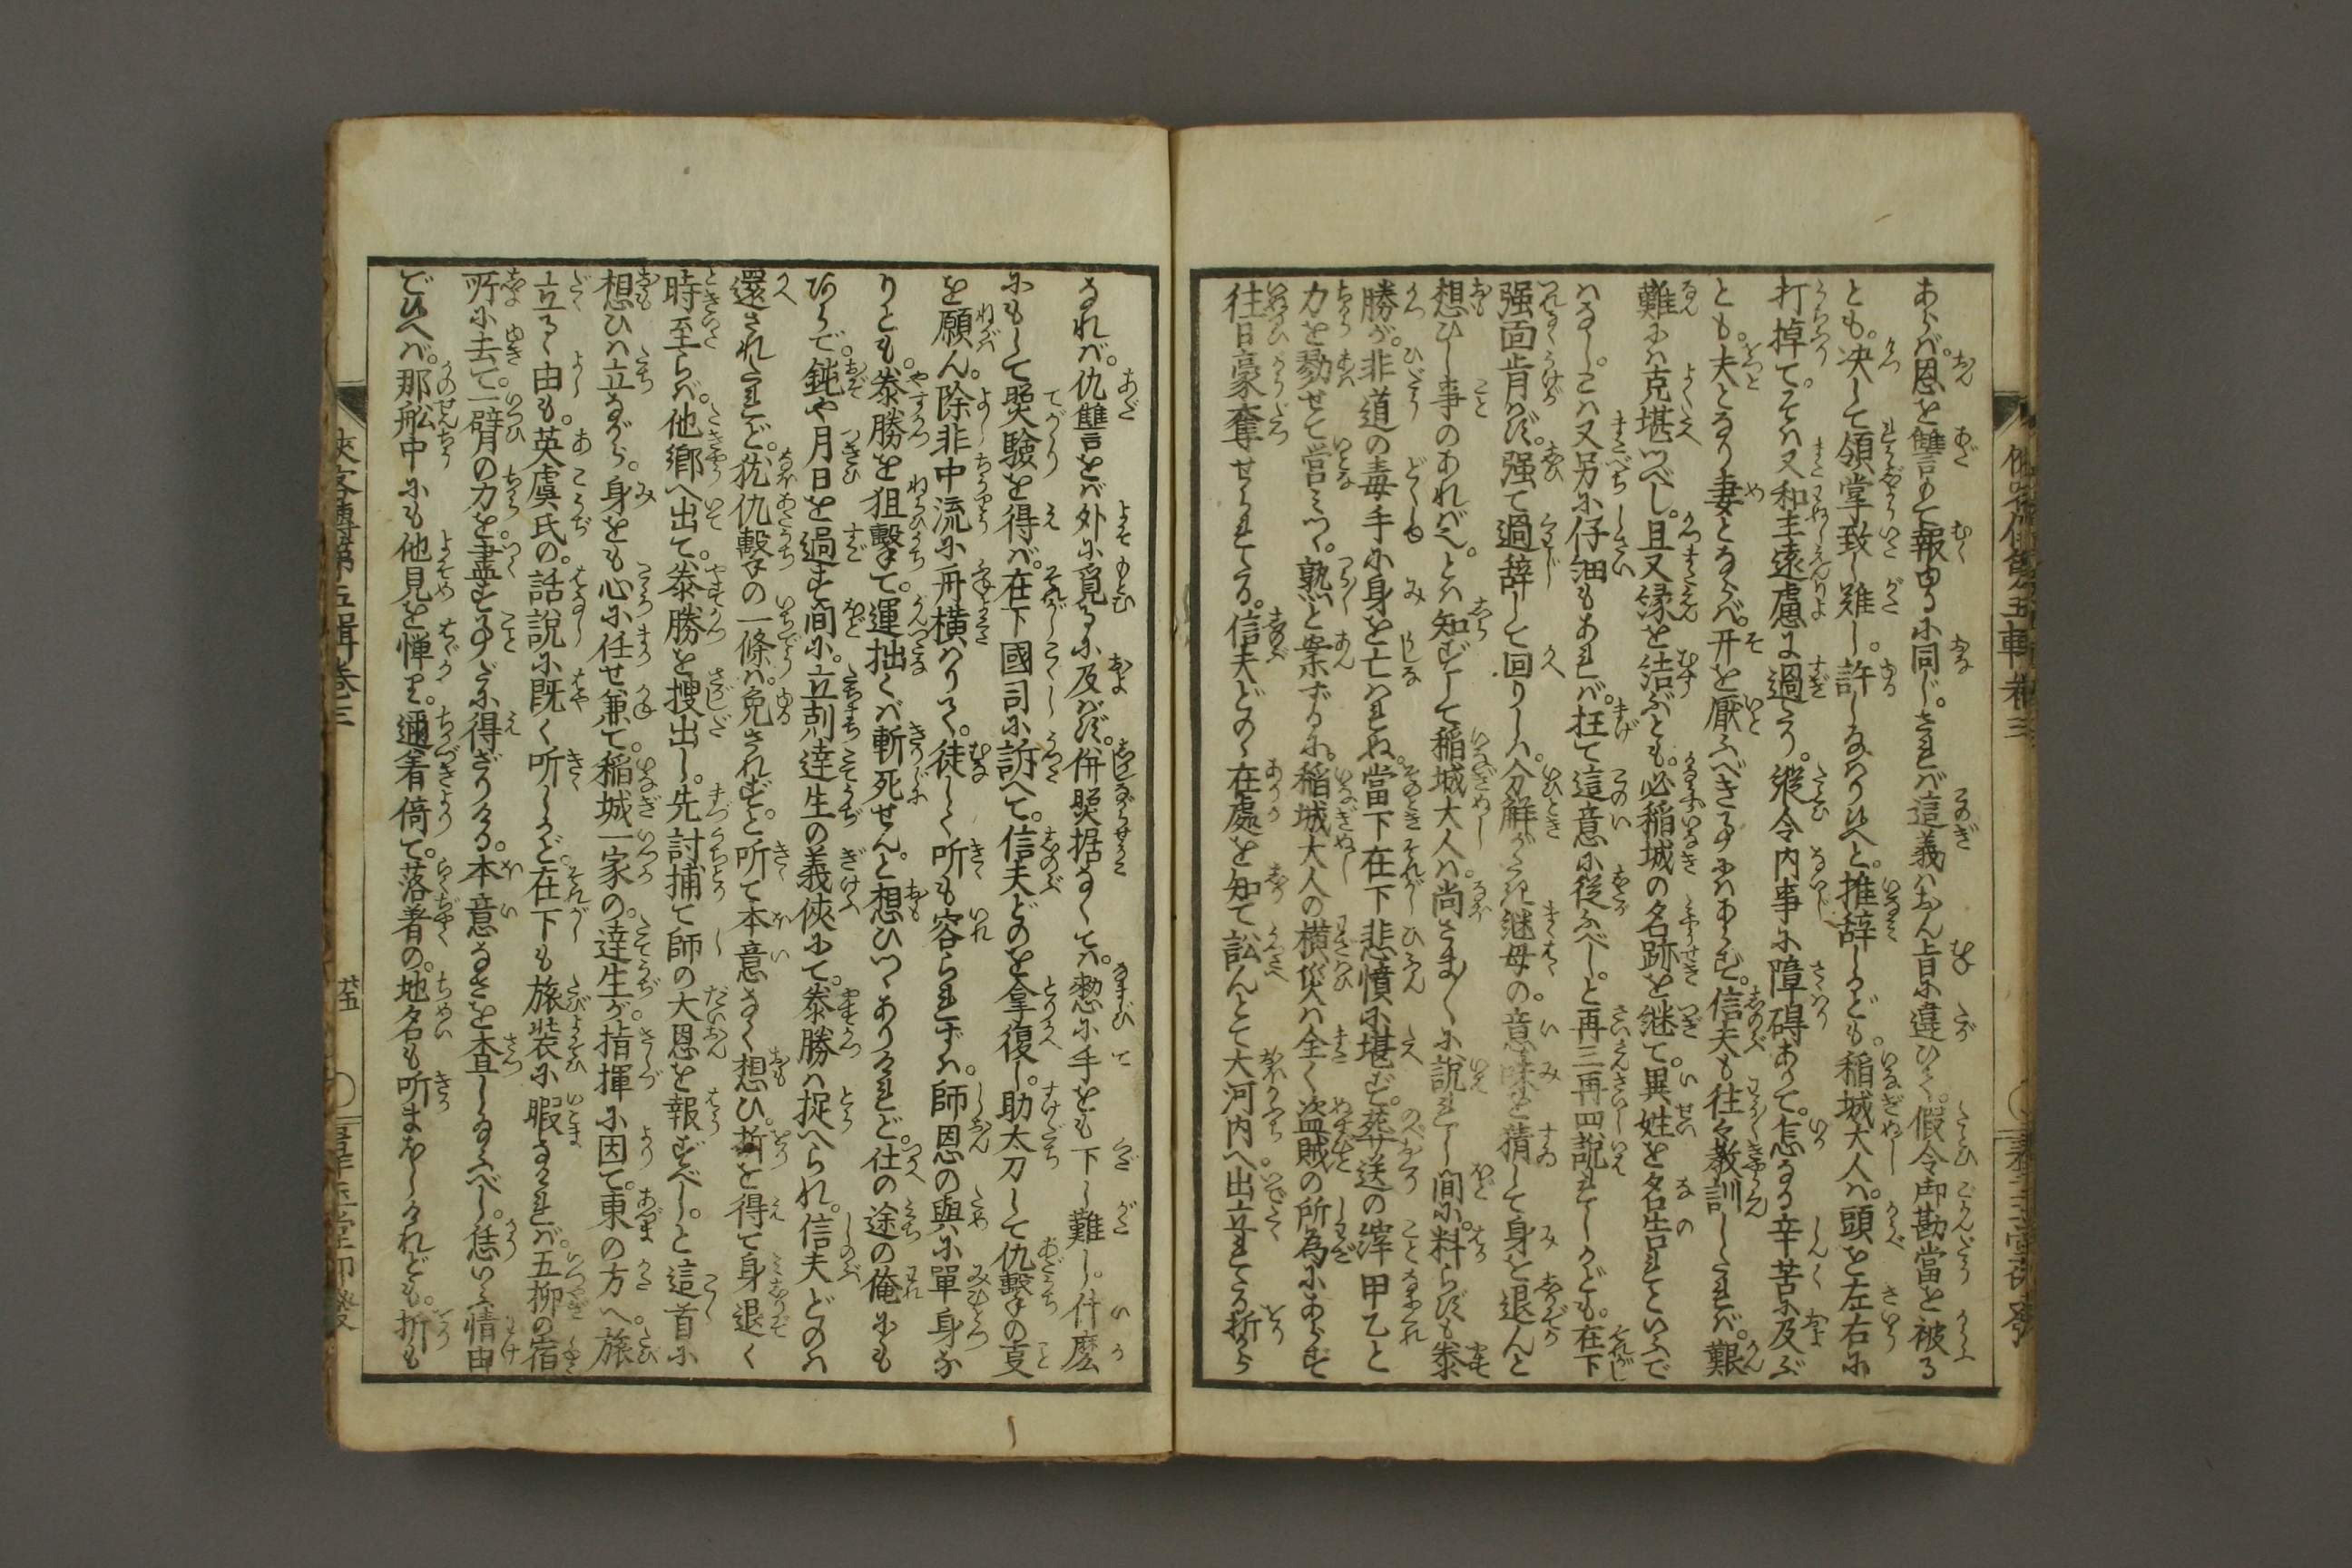 あらバ。恩を讐にて報ゆるに同じ。されバ這義ハおん旨に違ひて。假令御勘當を被る
とも。决して領掌致し難し。許しなハりねと。推辞しかども。稲城大人ハ。頭を左右に
打掉て。そハ又和主遠慮に過たり。縦令内事に障碍ありて。怎なる辛苦に及ぶ
とも。夫となり妻とならバ。开を厭ふべき事にハあらず。信夫も往々教訓したれバ。艱
難にハ克堪つべし。且又縁を結ぶとも。必稲城の名跡を継て。異姓を名告れといふで
ハなし。こハ又另に仔細もあれバ。枉て這意に從ふべし。と再三再四説れてしかども。在下
强面肯ハず。强て過辞して回りしハ。分解がたき継母の。意味を猜して身を退んと
想ひし事のあれバ也。とハ知ずして稲城大人ハ。尚さま〲に説れし間に。料らずも泰
勝が。非道の毒手に身を亡ハれぬ。當下在下悲憤に堪ず。葬送の縡甲乙と
力を勠せて営ミつ。熟〻と案ずるに。稲城大人の横災ハ全く盗賊の所為にあらず
往日豪奪せられたる。信夫どのゝ在處を知て訟んとて大河内へ出立れたる折から
なれバ。仇讐をバ外に覓るに及バず。併照据なくてハ。憖に手をも下し難し。什麼
にもして照驗を得バ。在下國司に訴へて。信夫どのを拿復し。助太刀して仇撃の叓
を願ん。除非中流に舟横ハりて。徒しく听も容られずハ。師恩の與に單身な
りとも。泰勝を狙撃て。運拙くバ斬死せんと。想ひつゝありけれど。仕の途の俺にも
びりで。鈍や月日を過す間に。立刻達生の義侠にて。泰勝ハ捉へられ。信夫どのハ
還されたれど。犹仇撃の一條ハ。免されず。と听て本意なく想ひ。折を得て身退く
時至らバ。他郷へ出て。泰勝を搜出し。先討捕て師の大恩を報ずべし。と這首に
想ひハ立ながら。身をも心に任せ兼て。稲城一家の。達生が。指揮に因て。東の方へ。旅
立るゝ由も。英虞氏の。話説に既く听しかど。在下も旅装に暇なけれバ。五柳の宿
所に去て。一臂の力を。盡す事だに得ざりける。本意なさを査しなふべし。恁いふ情由
でひへバ。那舩中にも他見を憚りて。邇着倚て。落着の。地名も听まほしけれども。折も
侠客傳第五輯卷三
廿五